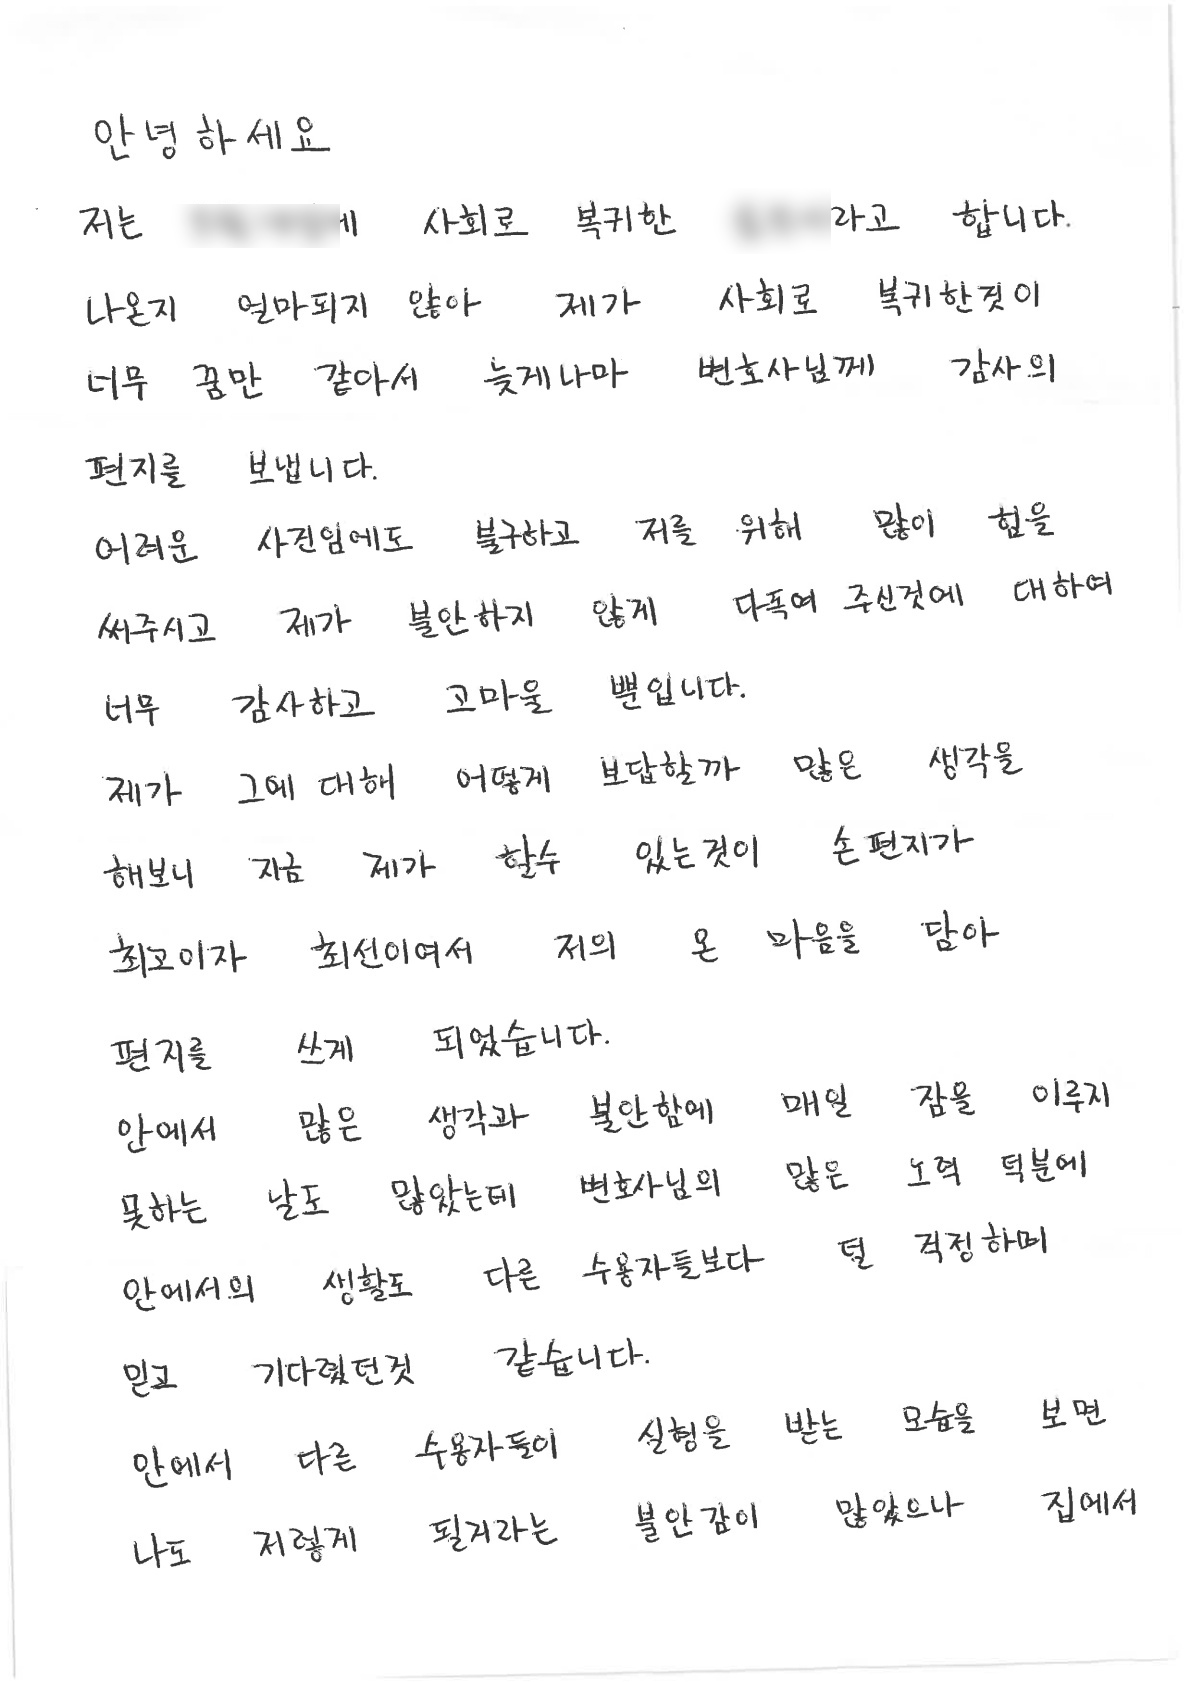 안녕하세요
저는 에 사회로 복귀한 라고 합니다.
나온지 얼마되지 않아 제가 사회로 복귀한것이
너무 꿈만 같아서 늦게나마 변호사님께 감사의
편지를 보냅니다.
어려운 사건임에도 불구하고 저를 위해 많이 힘을
써주시고 제가 불안하지 않게 다독여 주신것에 대하여
너무 감사하고 고마울 뿐입니다.
제가 그에 대해 어떻게 보답할까 많은 생각을
해보니 지금 제가 할수 있는것이 손편지가
최고이자 최선이여서 저의 온 마음을 담아
편지를 쓰게 되었습니다.
안에서 많은 생각과 불안함에 매일 잠을 이루지
못하는 날도 많았는데 변호사님의 많은 노력 덕분에
안에서의 생활도 다른 수용자들보다 덜 걱정하며
믿고 기다렸던것 같습니다.
안에서 다른 수용자들이 실형을 받는 모습을 보면
나도 저렇게 될거라는 불안감이 많았으나 집에서